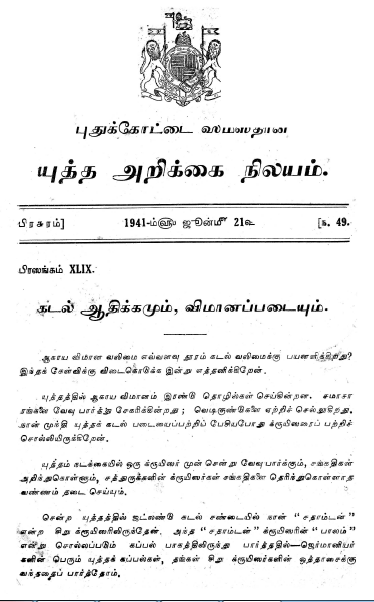 புதுக்கோட்டை ஸமஸ்தான
யுத்த அறிக்கை நிலயம்.
பிரசுரம்] 1941-ம்௵ ஜூன்௴ 21௳ [ந. 49.
பிரஸங்கம் XLIX.
கடல் ஆதிக்கமும், விமானப்படையும்.
ஆகாய விமான வலிமை எவ்வளவு தூரம் கடல் வலிமைக்கு பயனளிக்கிறது?
இந்தக் கேள்விக்கு விடைகொடுக்க இன்று எத்தனிக்கிறேன்.
யுத்தத்தில் ஆகாய விமானம் இரண்டு தொழில்கள் செய்கின்றன. சமாசா
ரங்களை வேவு பார்த்து சேகரிக்கின்றது ; வெடிகுண்டுகளை ஏற்றிச் செல்லுகிறது.
நான் முந்தி யுத்தக் கடல் படையைப்பற்றிப் பேசியபோது க்ரூயிஸரைப் பற்றிச்
சொல்லியிருக்கிறேன்.
யுத்தம் நடக்கையில் ஒரு க்ரூயிஸர் முன் சென்று வேவு பார்க்கும், சங்கதிகள்
அறிந்துகொள்ளும், சத்துருக்களின் க்ரூயிஸர்கள் சங்கதிகளை தெரிந்துகொள்ளாத
வண்ணம் தடை செய்யும்.
சென்ற யுத்தத்தில் ஜட்லண்டு கடல் சண்டையில் நான் “ சதாம்டன் ”
என்ற சிறு க்ரூயிஸரிலிருந்தேன். அந்த “ சதாம்டன் ” க்ரூயிஸரின் “ பாலம் ”
என்று சொல்லப்படும் கப்பல் பாகத்திலிருந்து பார்த்ததில்—ஜெர்மானியர்
களின் பெரும் யுத்தக் கப்பல்கள், தங்கள் சிறு க்ரூயிஸர்களின் ஒத்தாசைக்கு
வந்ததைப் பார்த்தோம்.